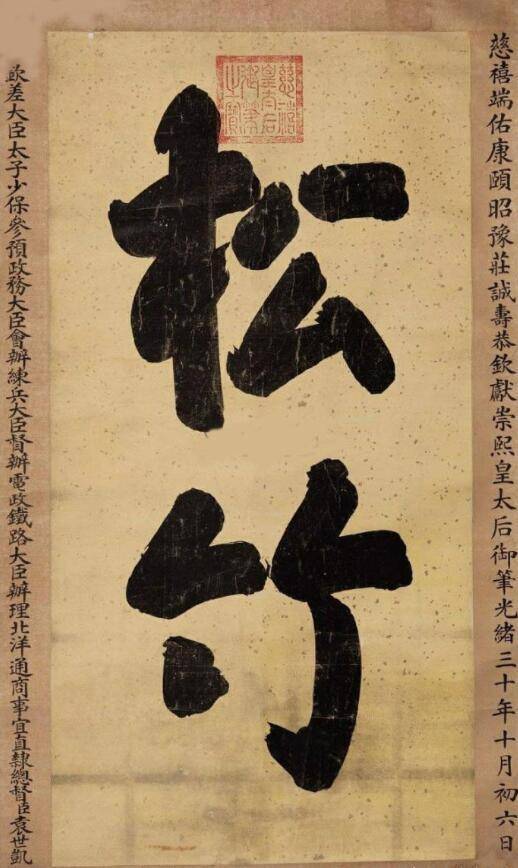 慈禧端佑康頤昭豫莊誠壽恭欽獻崇熙皇太后御筆光緒三十年十月初六日
慈禧皇太后御筆之寶
松竹
欽差大臣太子少保參預政務大臣會辦練兵大臣督辦電政鐵路大臣辦理北洋通商事宜直隸總督臣袁世凱